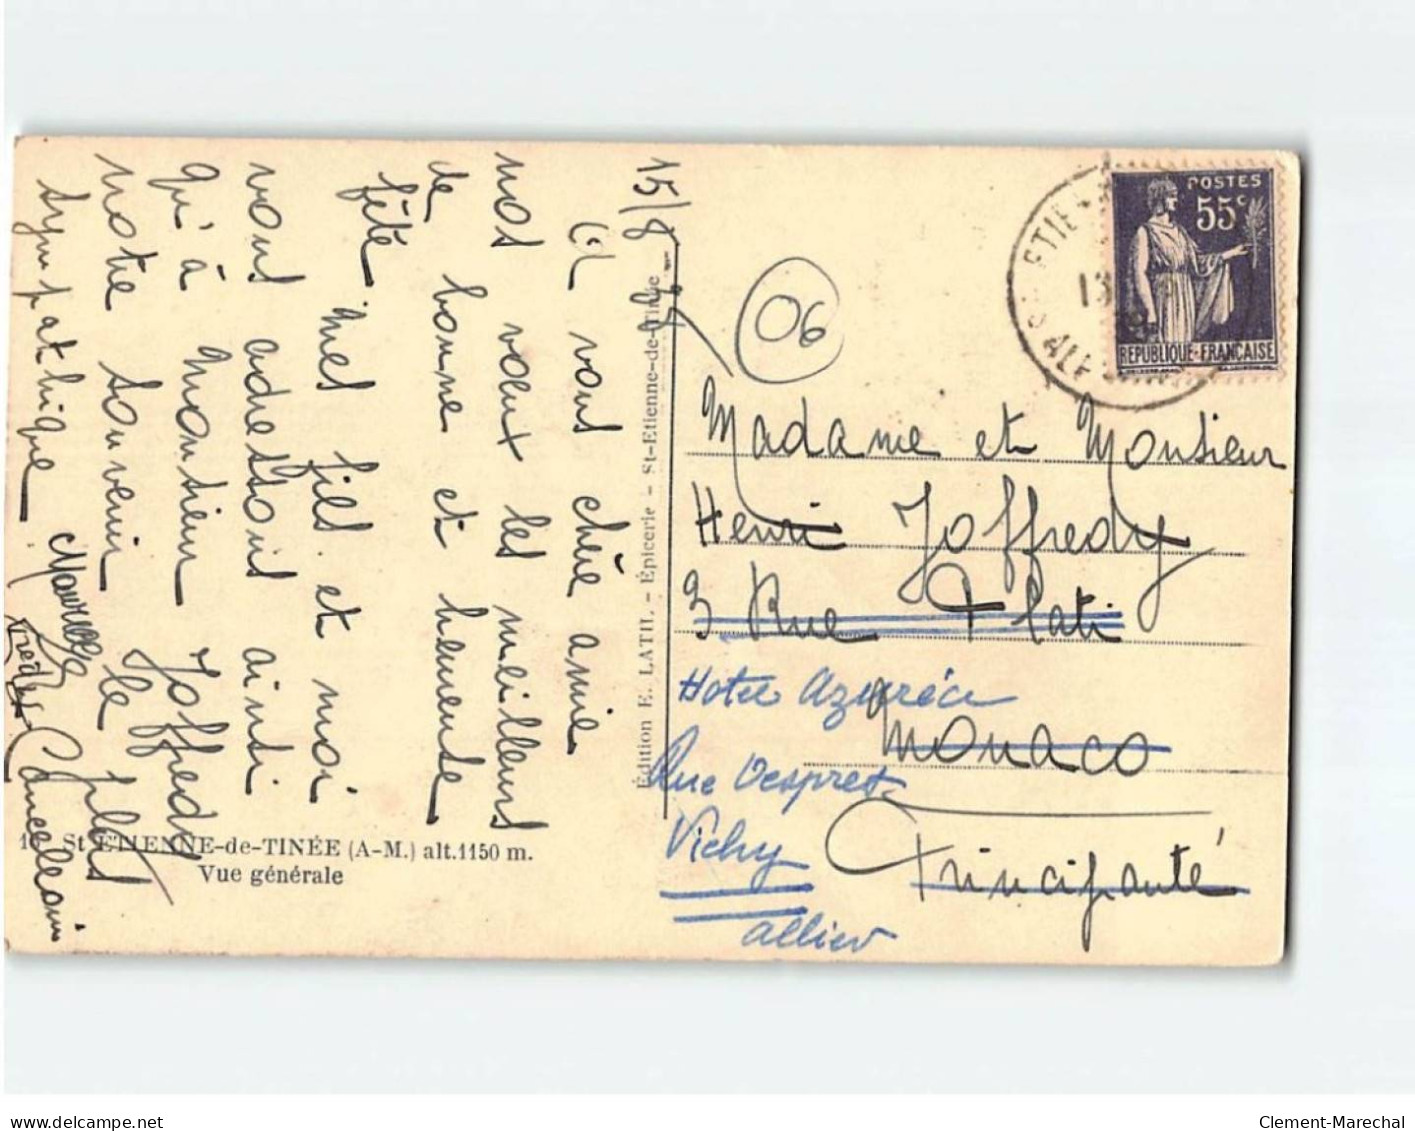 15/8
A vous chère amie
nos vœux les meilleurs
de bonne et heureuse
fête. Mes fils et moi
vous adressons ainsi
qu'à Monsieur Joffredy
notre souvenir le plus
sympathique.
Cancellani
Édition E. LATIL - Épicerie - St-Etienne-de-Tinée
St ETIENNE-de-TINÉE (A-M.) alt.1150 m.
Vue générale
06
POSTES
55c
REPUBLIQUE-FRANÇAISE
ETIE
13
Madame et Monsieur
Henri Joffredy
3 Rue Plati
Monaco
Principauté
Hotel Azuréa
Rue Desprez
Vichy
Allier
delcampe.net
Clement-Marechal